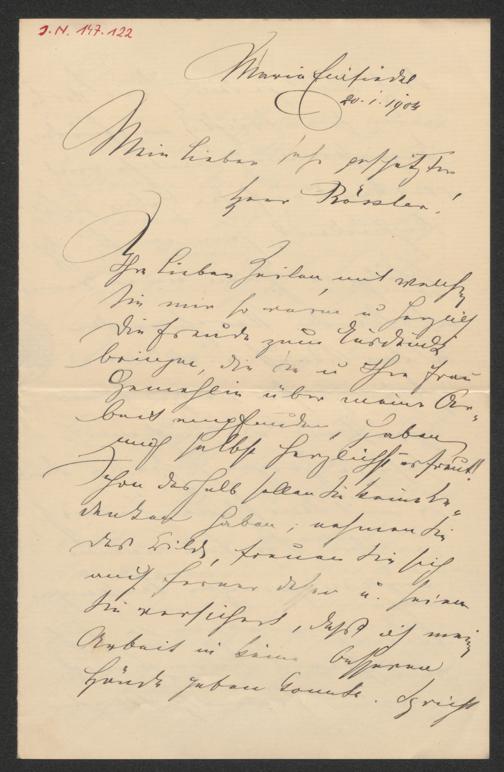 J.N. 147.122
Maria Einsiedel
20.1.1904
Mein lieber sehr geschätzter
Herr Rössler!
Ihre lieben Zeilen, mit welchen
Sie mir so warm u herzlich
die Freude zum Ausdruck
bringen, die Sie u Ihre Frau
Gemahlin über meine Ar-
beit empfunden, haben
mich selbst herzlichst erfreut!
Schon deshalb sollen Sie keine Be-
denken haben; nehmen Sie
das Bild, freuen Sie sich
auch ferner daran u. seien
Sie versichert, daß ich meine
Arbeit in keine besseren
Hände geben konnte. Spricht